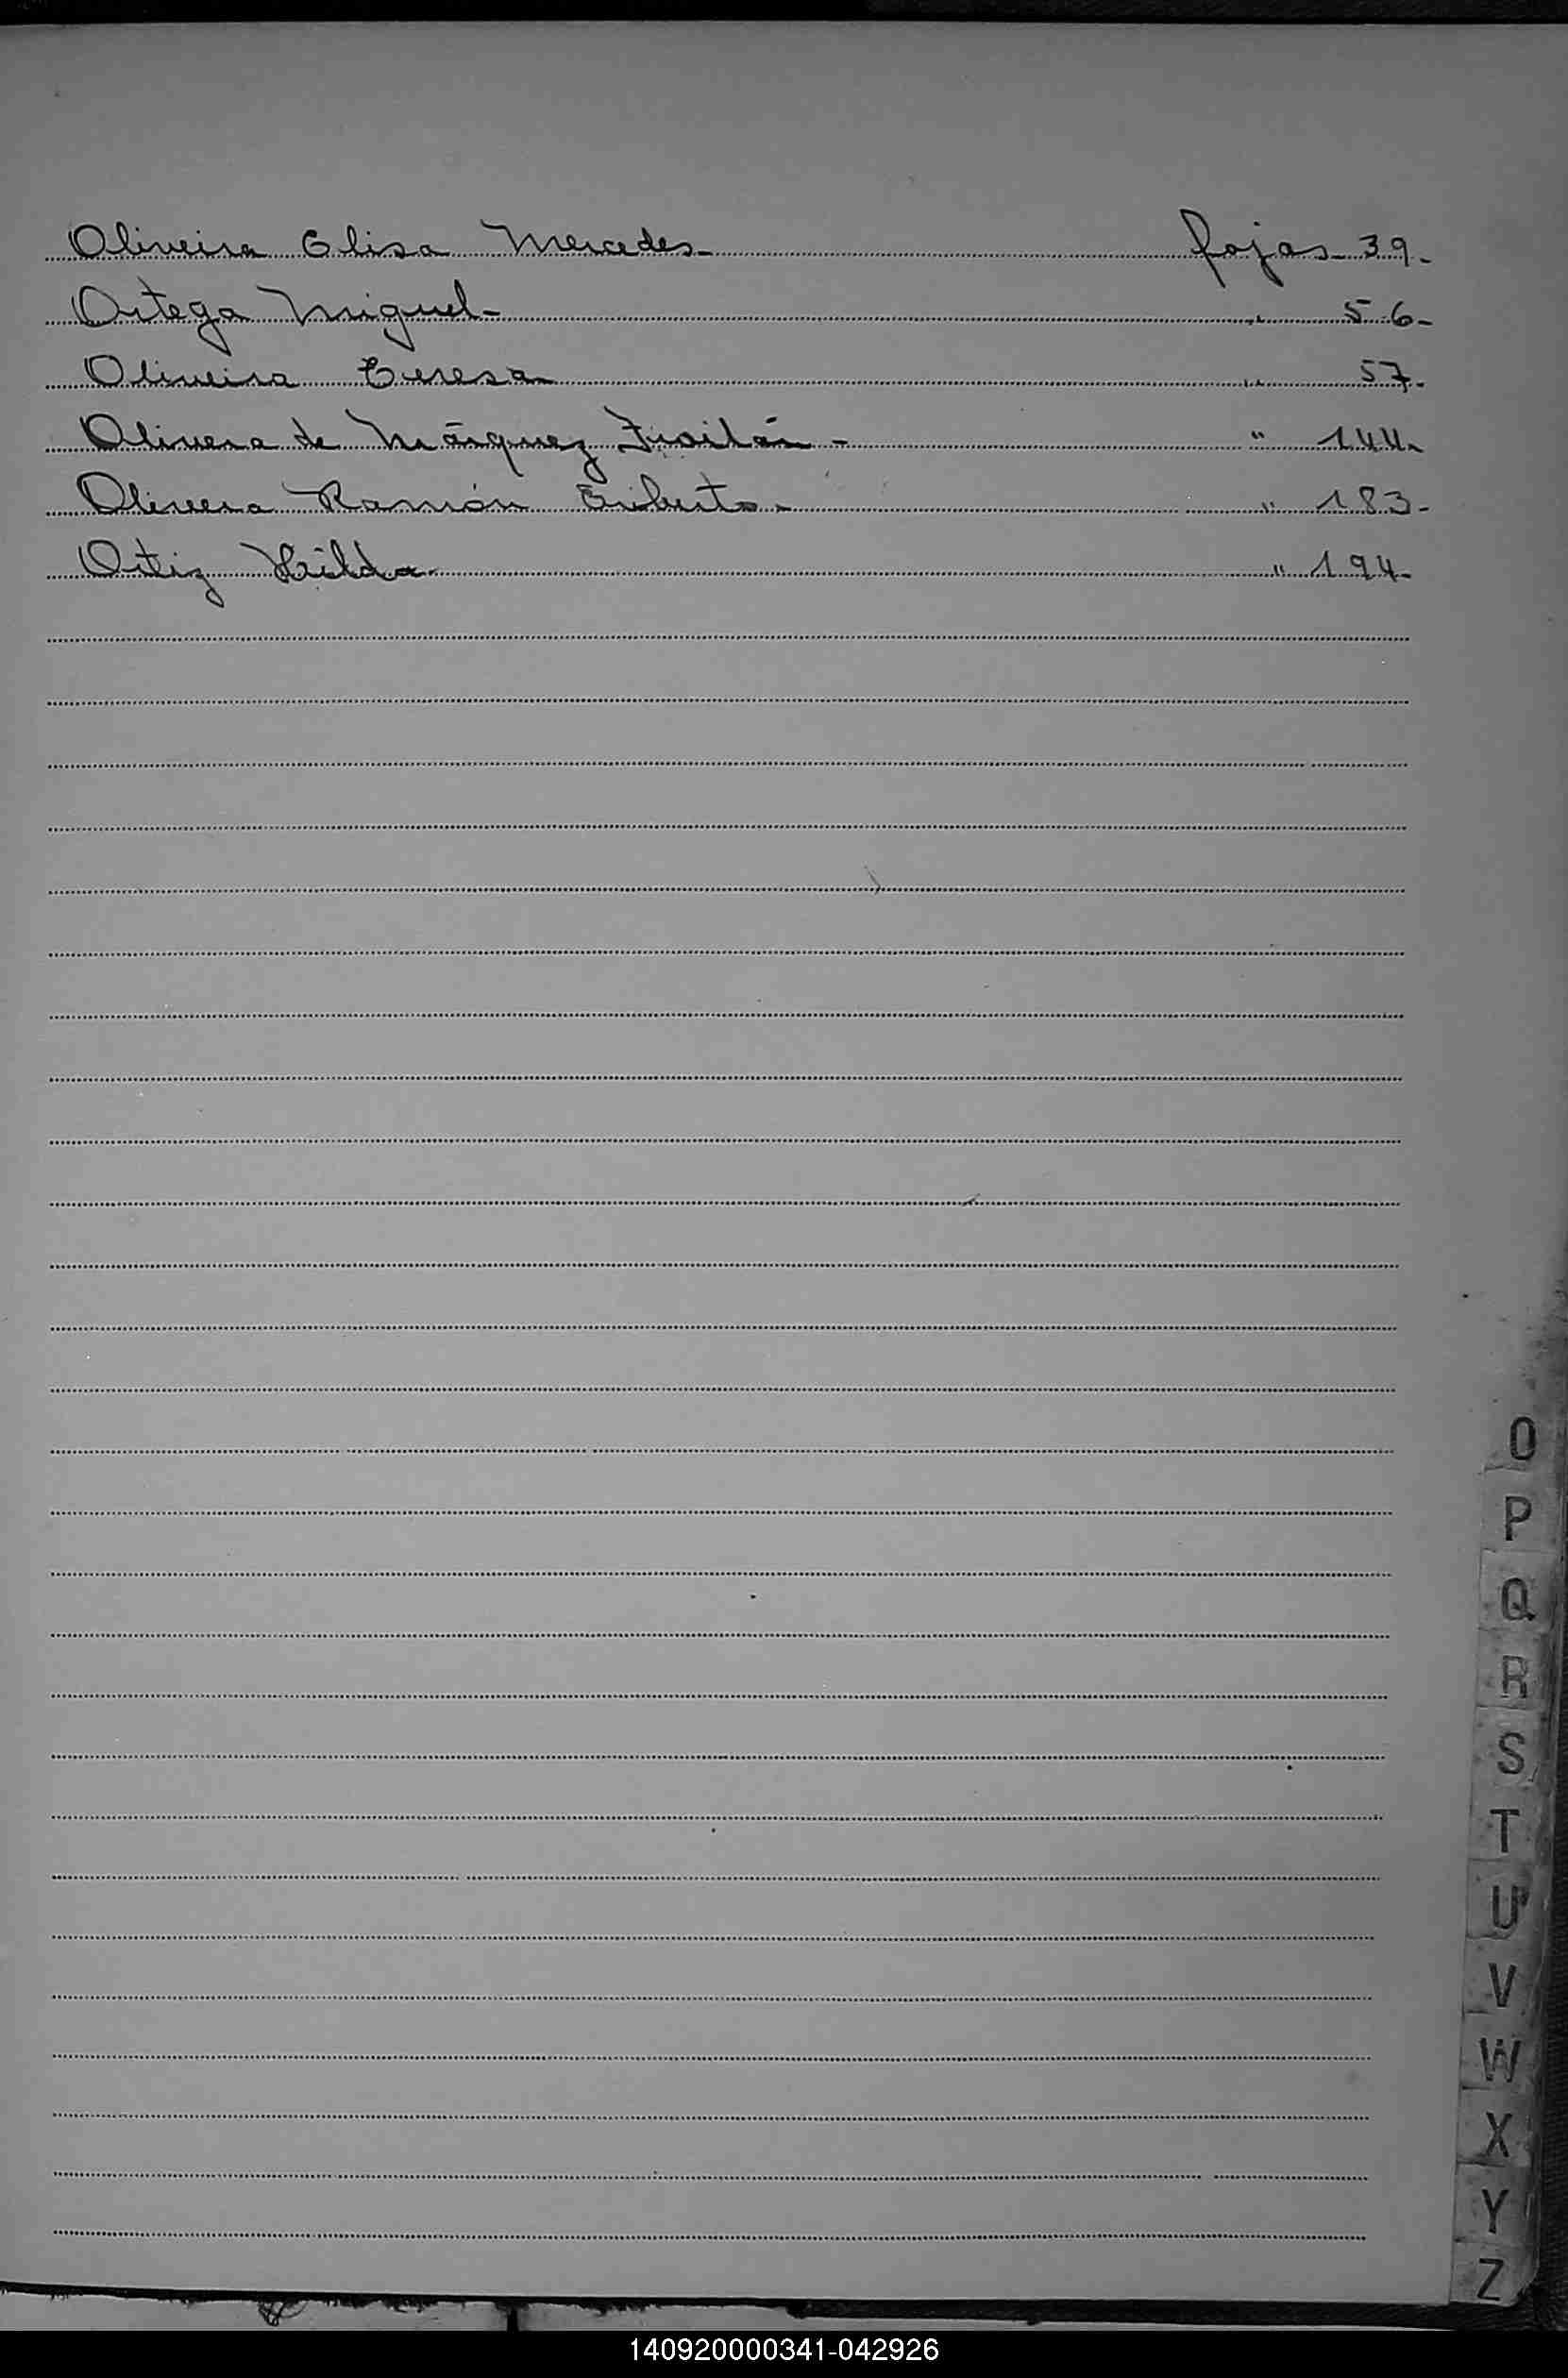 Oliveira Elisa Mercedes- fojas 39-
Ortega Miguel- " 56-
Oliveira Teresa " 57-
Olivera de Márquez Froilán - " 144-
Olivera Ramón Eriberto- " 183-
Ortiz Hilda- " 194-
O
P
Q
R
S
T
U
V
W
X
Y
Z
140920000341-042926